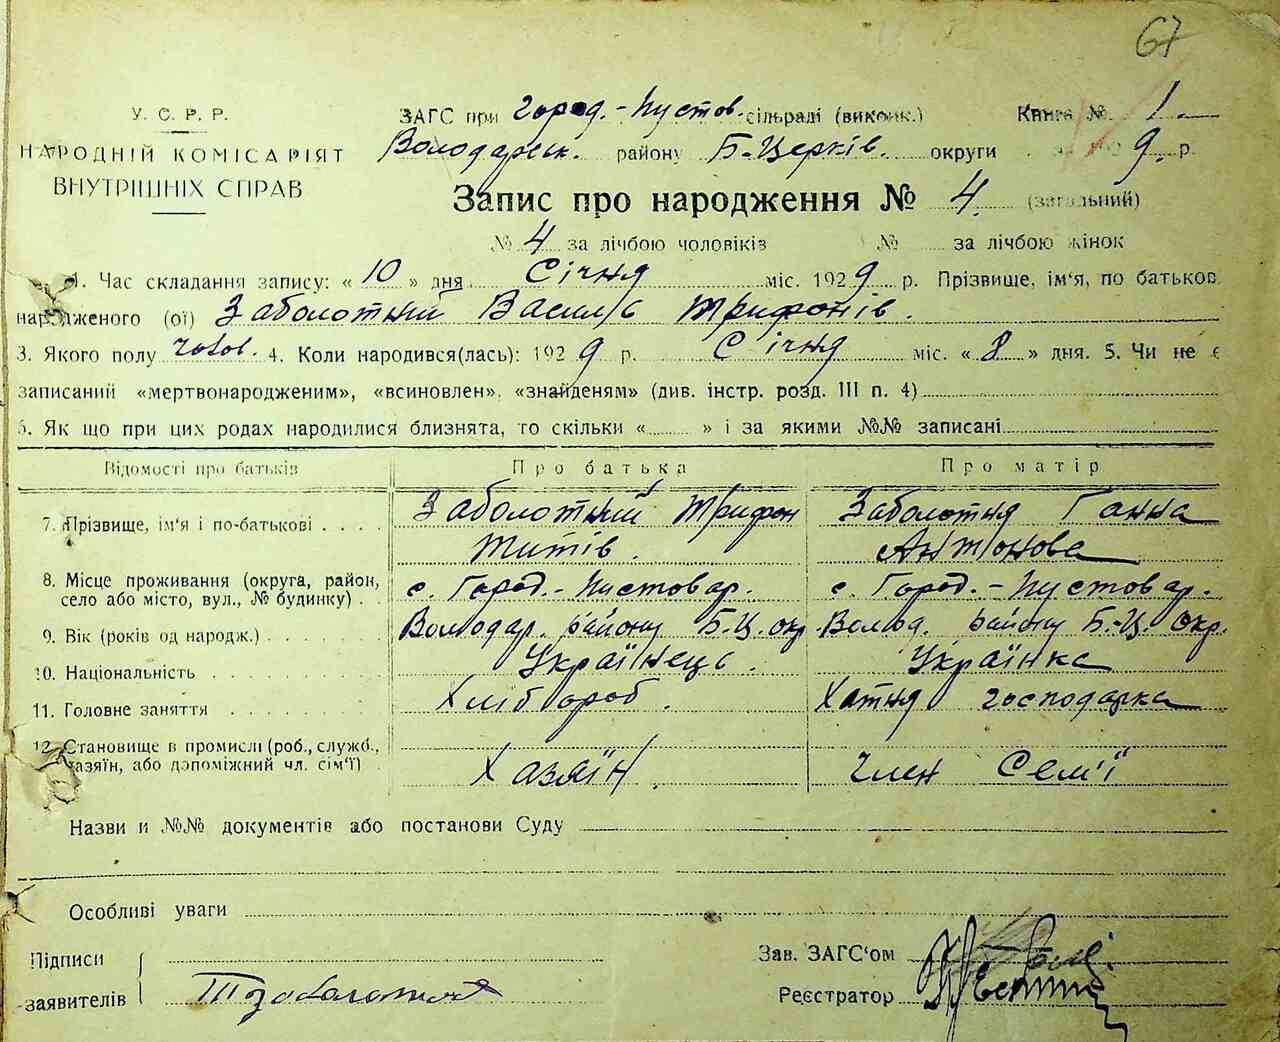 67
У. С. Р. Р.
НАРОДНІЙ КОМІСАРІЯТ
ВНУТРІШНІХ СПРАВ
ЗАГС при Город.-Пустов. сільраді (викоик.) Книга № 1.
Володарськ. району Б-Церків. округи 9. р.
Запис про народження № 4. (загальний)
№ 4 за лічбою чоловіків № за лічбою жінок
1. Час складання запису: « 10 » дня Січня міс. 1929 р. Прізвище, ім'я, по батьков
народженого (ої) Заболотний Василь Трифонів.
3. Якого полу чолов. 4. Коли народився(лась): 1929 р. Січня міс. « 8 » дня. 5. Чи не є
записаний «мертвонародженим», «всиновлен», «знайденям» (див. інстр. розд. III п. 4)
6. Як що при цих родах народилися близнята, то скільки « » і за якими №№ записані
Відомості про батьків Про батька Про матір
7. Прізвище, ім'я і по-батькові Заболотний Трифон Заболотня Ганна
Титів. Антонова
8. Місце проживання (округа, район, с. Город.-Пустовар. с. Город.-Пустовар.
село або місто, вул., № будинку)
9. Вік (років од народж.) Володар. району Б.-Ц. окр. Волод. району Б.-Ц. окр.
10. Національність Українець. Українка
11. Головне заняття Хлібороб. Хатня господарка
12. Становище в промислі (роб., служб.,
хазяїн, або допоміжний чл. сім'ї) Хазяїн. член Семʼї
Назви и №№ документів або постанови Суду
Особливі уваги
Підписи Зав. ЗАГС'ом
заявителів Т Заболотний Реєстратор